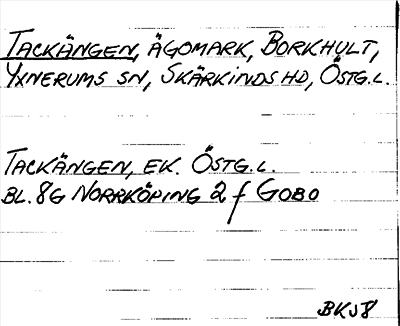 TACKÄNGEN, ÄGOMARK, BORKHULT,
YXNERUMS SN, SKÄRKINDS HD, ÖSTG.L.
TACKÄNGEN, EK. ÖSTG.L.
BL. 8G NORRKÖPING 2 f GOBO
BKJ8